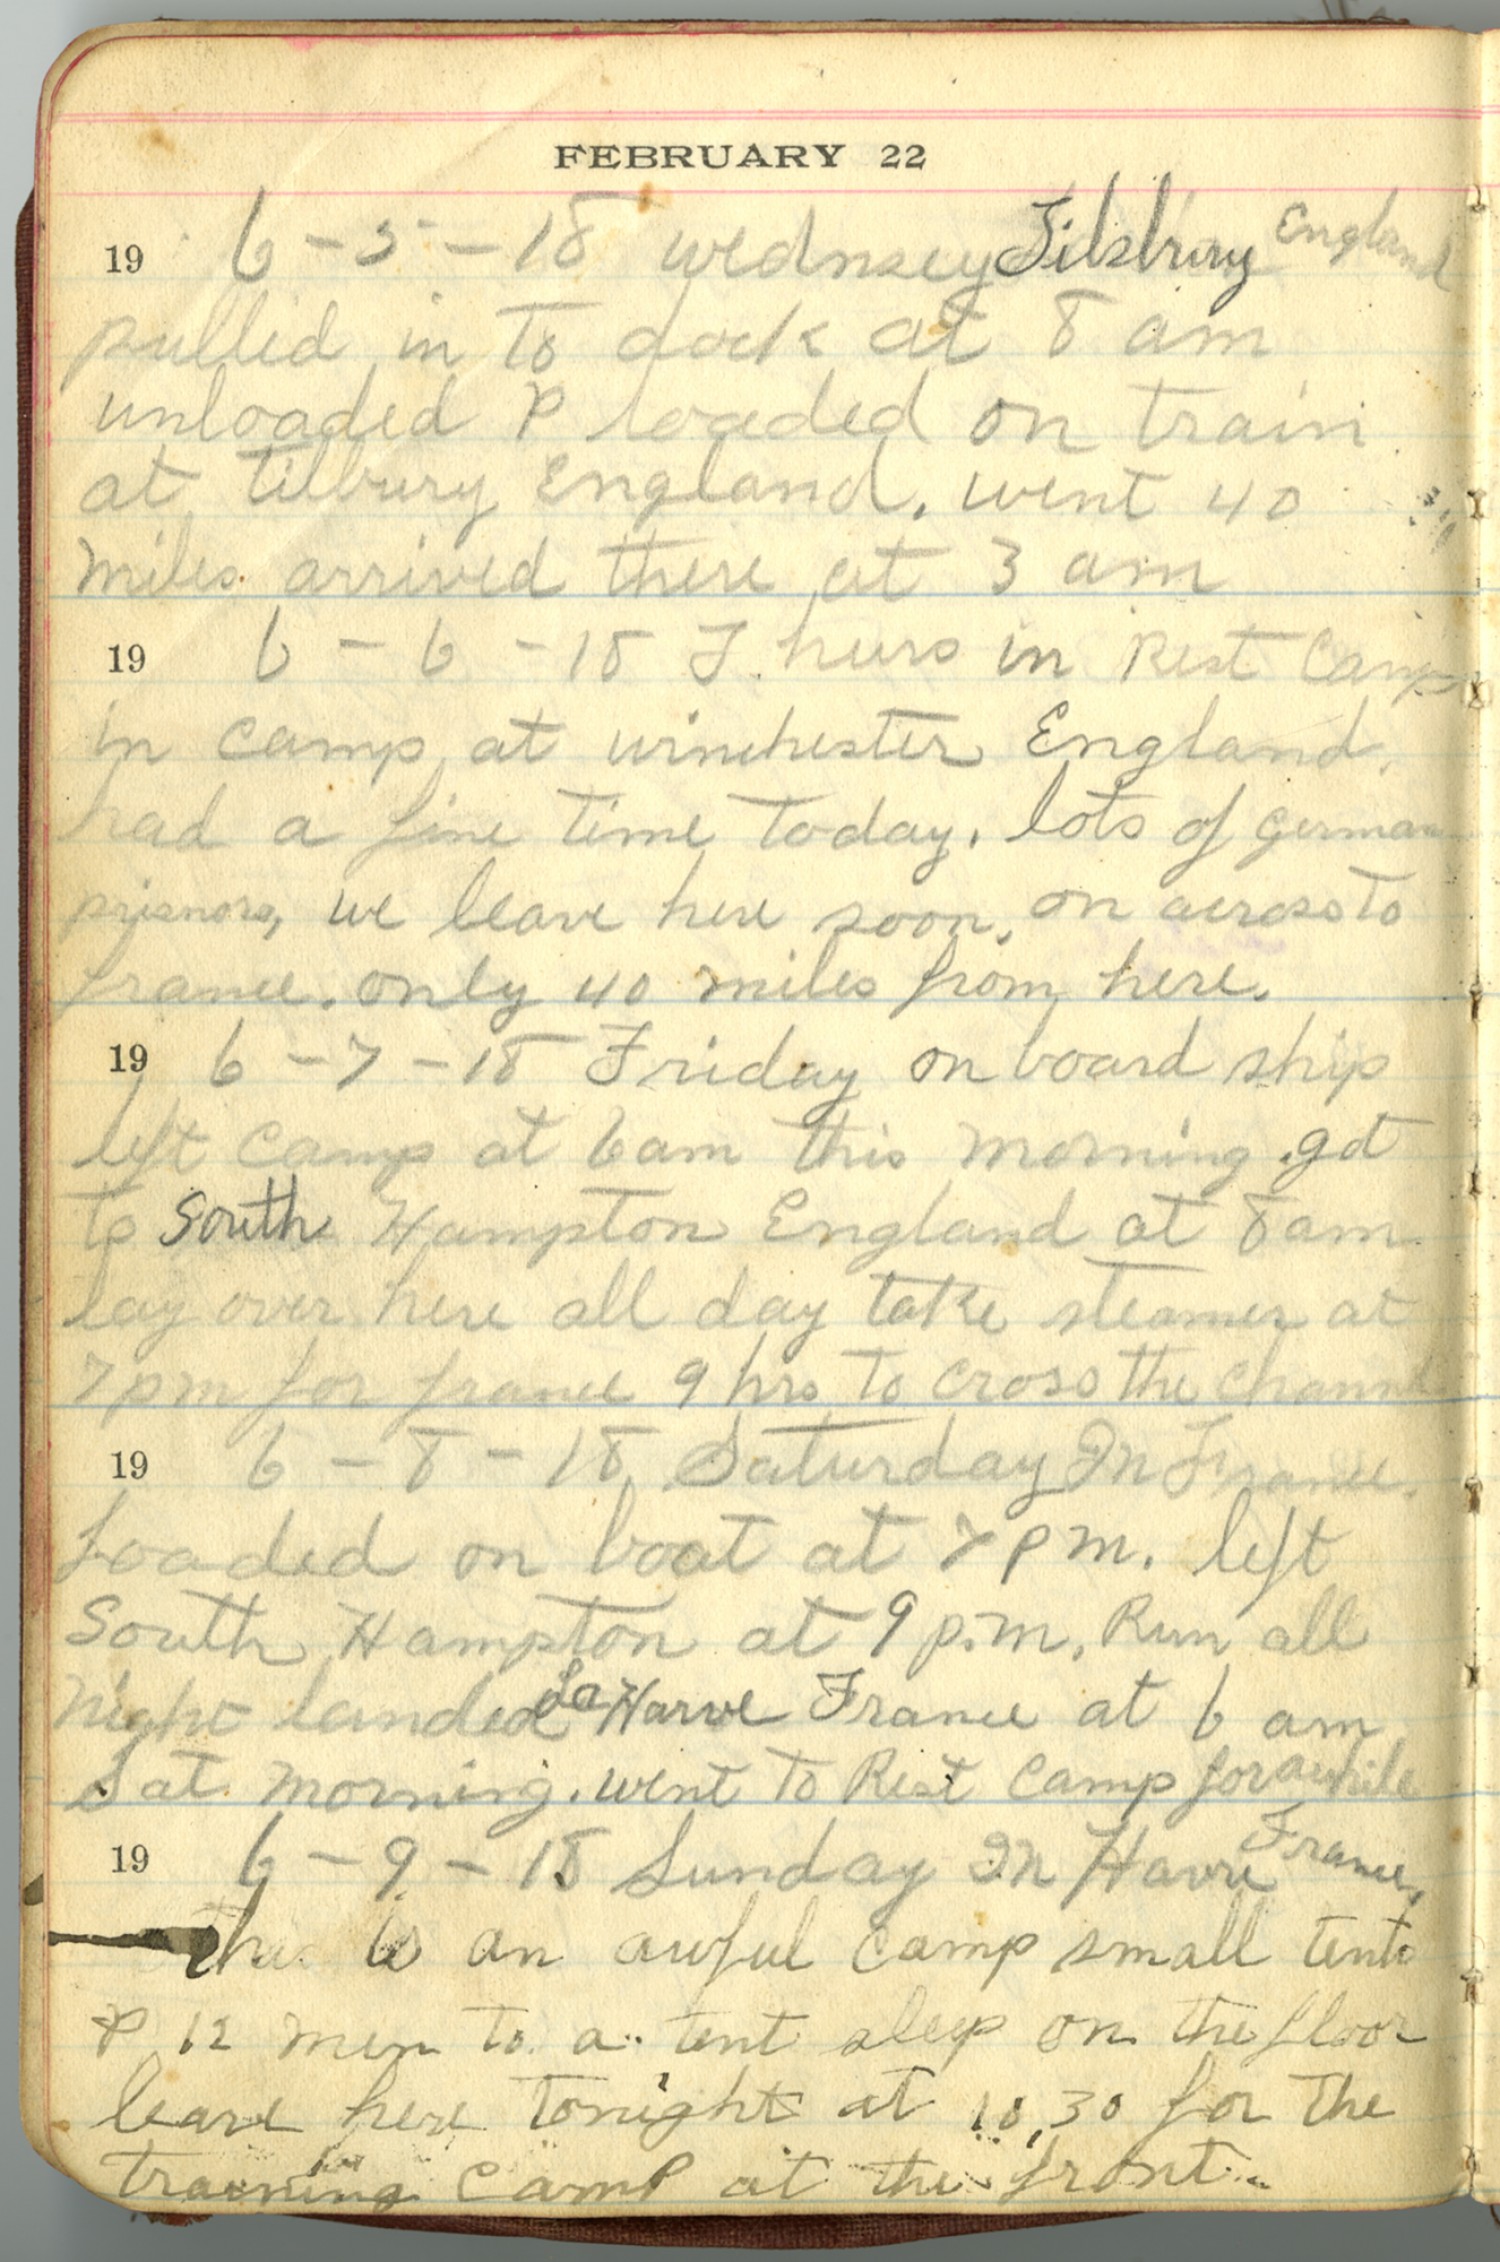 FEBRUARY 22
19 6-5-18 wednsey Tilsbrury England
pulled in to dock at 8 am
unloaded & loaded on train
at Tilbury England. went 40
miles. arrived there at 3 am
19 6-6-18 Thurs in Rest Camp
in camp at winchester England.
had a fine time today. lots of german
prisnors, we leave here soon. on across to
france. only 40 miles from here.
19 6-7-18 Friday on board ship
left Camp at 6 am this morning. got
to South Hampton England at 8 am
lay over here all day take steamer at
7 pm for france 9 hrs to cross the channel
19 6-8-18 Saturday In France.
Loaded on boat at 7 pm. left
South Hampton at 9 p.m. Run all
Night landed La Harve France at 6 am
Sat morning. went to Rest Camp for awhile
19 6-9-18 Sunday In Havre France.
is an awful camp small tents
& 12 men to a tent sleep on the floor
leave here tonight at 10,30 for the
training camp at the front.